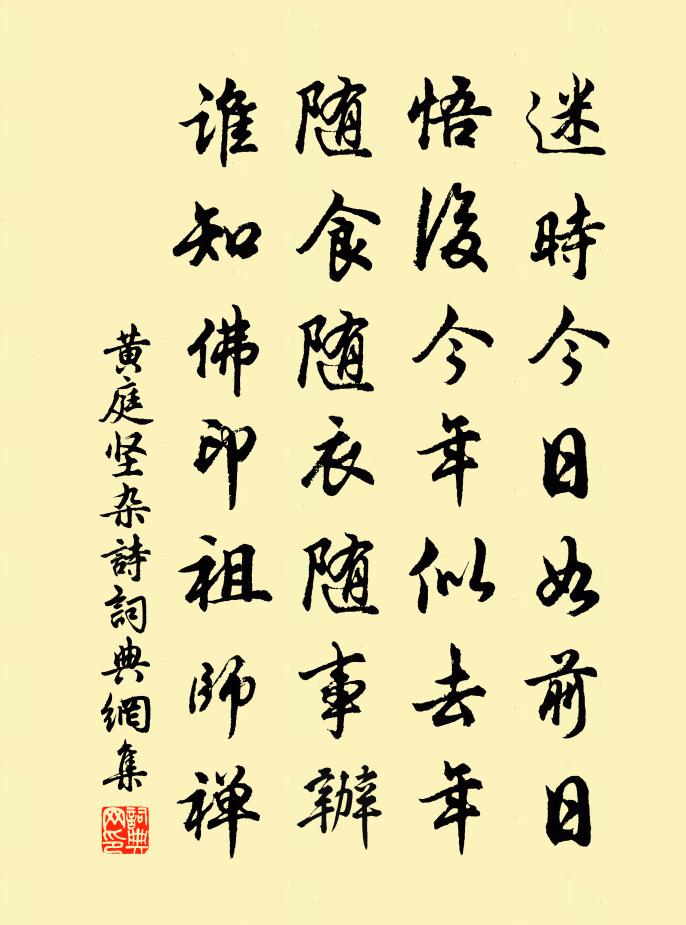 迷時今日如前日
悟後今年似去年
随食随衣随事辦
谁知佛印祖師禅
黄庭坚杂詩詞典網集
詞典
网印